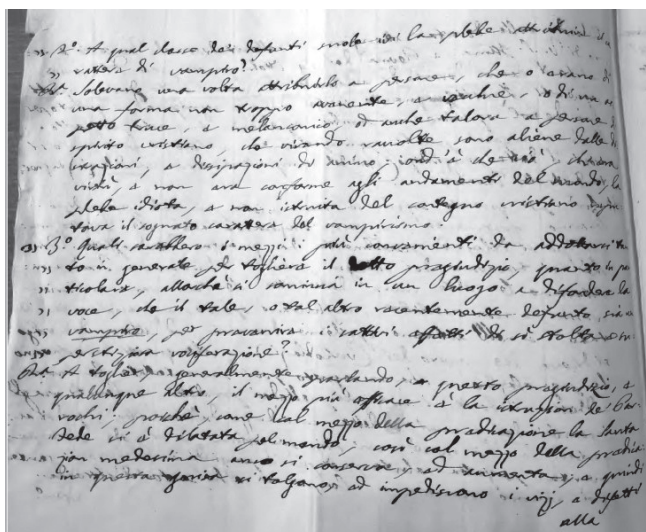 „ 2.° A qual classe dei defunti suole la plebe attribuire il ca
„ rattere di vampiro?
Ris. Solevano una volta attribuirlo a persone, che o erano di
una forma non troppo avvenente, o di un a
spetto truce, o melanconico, ed anche talora a persone di
spirito cristiano che vivendo raccolte sono aliene dalle
e dissipazioni del secolo: ond'è che chi era
virtù, e non era conforme agli andamenti del mondo, la
plebe idiota, e non istruita del contegno cristiano
tova il sognato carattere del vampirismo.
„ 3.° Quali sarebbero i mezzi i più convenienti da addottarsi tan
„ to in generale per togliere il detto pregiudizio, quanto in par
„ ticolare, allorchè si comincia in un luogo a diffonder la
„ voce, che il tale, o tal altro recentemente defunto sia
vampiro, per prevenire i cattivi effetti di sì stolta e su
perstiziosa vociferazione?
Ris. A togliere, generalmente parlando, e questo pregiudizio, e
qualunque altro, il mezzo più efficace è la istruzion de' Par
rochi; poichè, come col mezzo della predicazione la Santa
Fede si è dilatata pel mondo, così col mezzo della predica
zion medesima si conserva, ed aumenta, e quindi
in questa si tolgono, ed impediscono i vizj, e difetti
alla